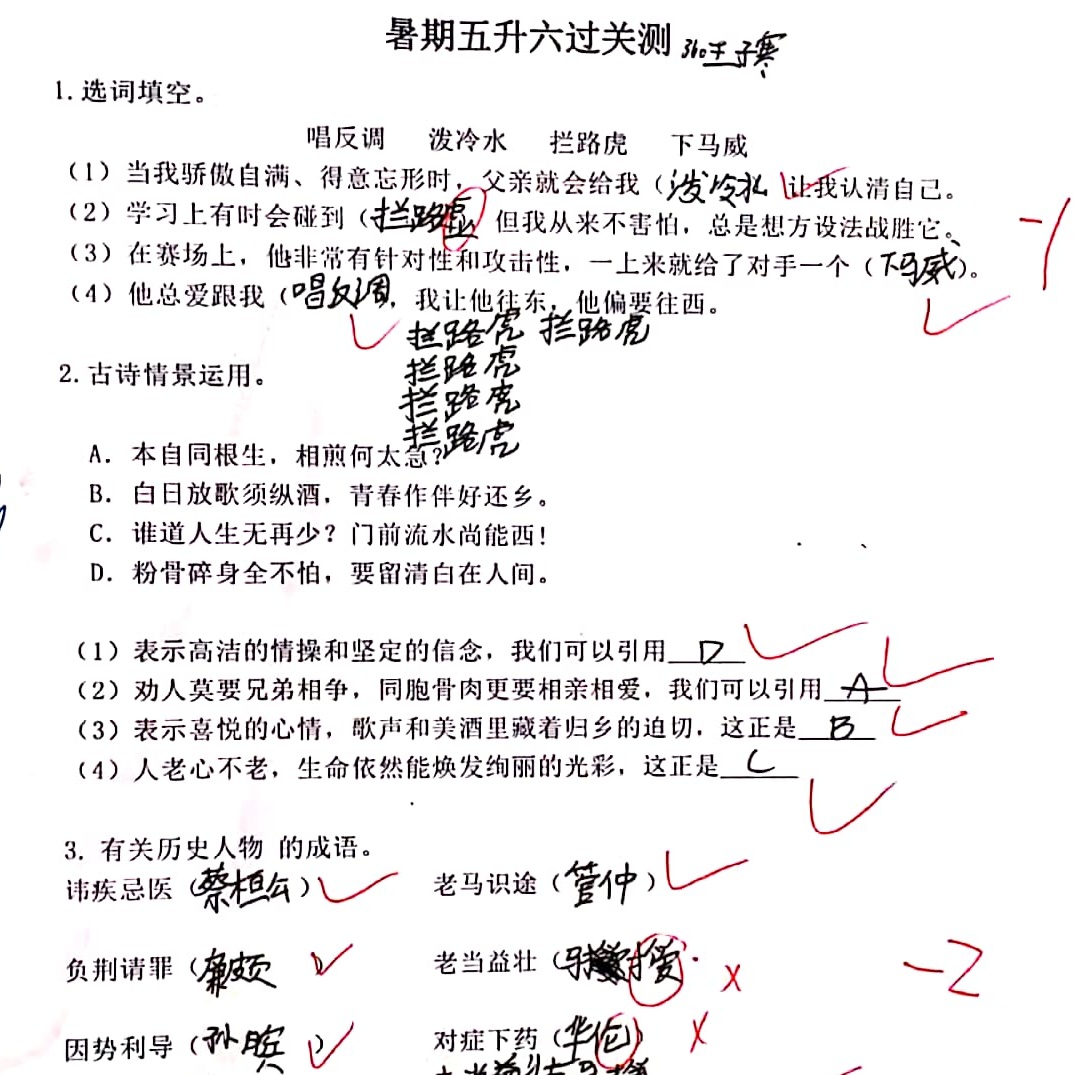 暑期五升六过关测 360王子寒
1.选词填空。
唱反调 泼冷水 拦路虎 下马威
（1）当我骄傲自满、得意忘形时，父亲就会给我（泼冷水 让我认清自己。
（2）学习上有时会碰到（拦路虚 但我从来不害怕，总是想方设法战胜它。
-1
（3）在赛场上，他非常有针对性和攻击性，一上来就给了对手一个（下马威）。
（4）他总爱跟我（唱反调，我让他往东，他偏要往西。
拦路虎 拦路虎
拦路虎
拦路虎
拦路虎
2.古诗情景运用。
A. 本自同根生，相煎何太急？
B. 白日放歌须纵酒，青春作伴好还乡。
C. 谁道人生无再少？门前流水尚能西！
D. 粉骨碎身全不怕，要留清白在人间。
（1）表示高洁的情操和坚定的信念，我们可以引用 D
（2）劝人莫要兄弟相争，同胞骨肉更要相亲相爱，我们可以引用 A
（3）表示喜悦的心情，歌声和美酒里藏着归乡的迫切，这正是 B
（4）人老心不老，生命依然能焕发绚丽的光彩，这正是 C
3. 有关历史人物 的成语。
讳疾忌医（蔡桓公） 老马识途（管仲）
负荆请罪（廉颇） 老当益壮（
-2
因势利导（孙膑） 对症下药（华佗）